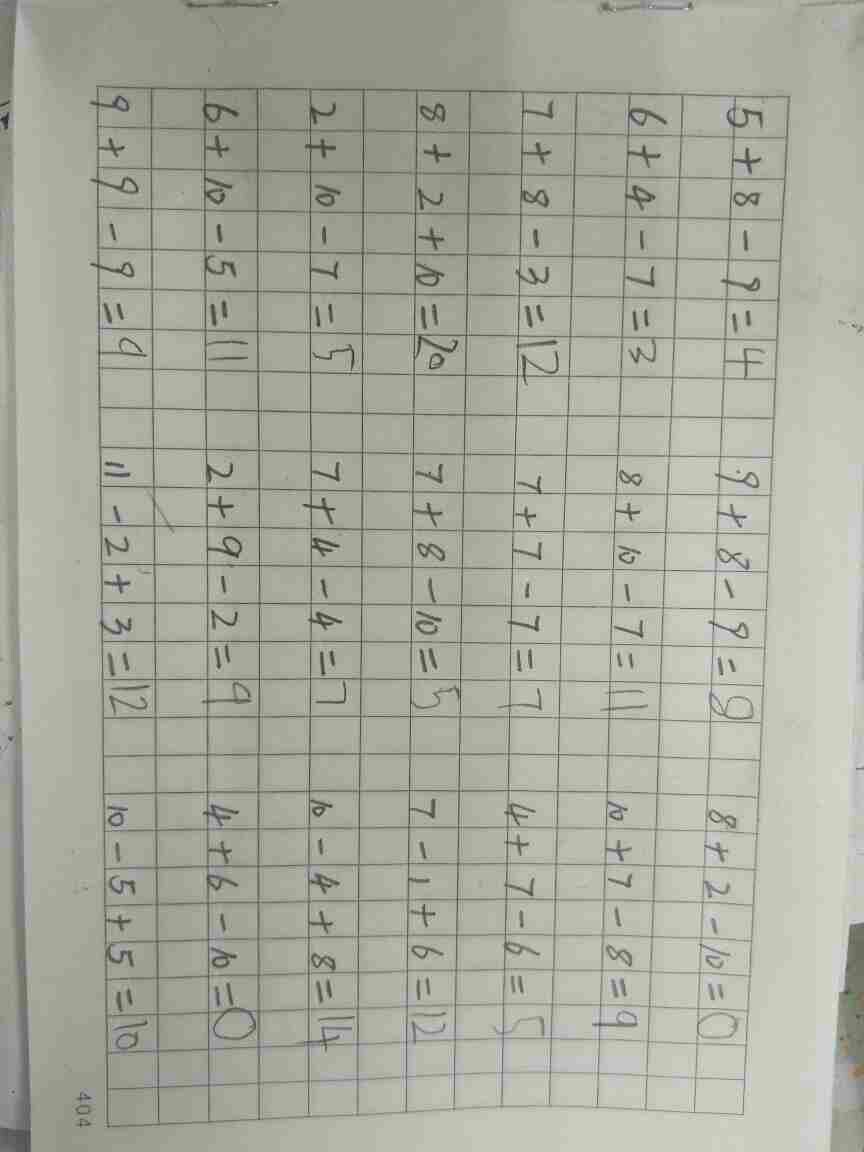 5+8-9=4 9+8-9=8 8+2-10=0
6+4-7=3 8+10-7=11 10+7-8=9
7+8-3=12 7+7-7=7 4+7-6=5
8+2+10=20 7+8-10=5 7-1+6=12
2+10-7=5 7+4-4=7 10-4+8=14
6+10-5=11 2+9-2=9 4+6-10=0
9+9-9=9 11-2+3=12 10-5+5=10
404